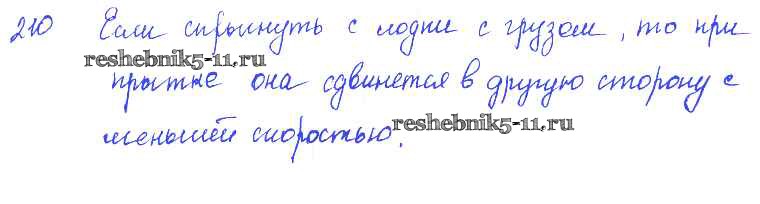 210 Если спрыгнуть с лодки с грузом, то при
reshebnik5-11.ru
прыжке она сдвинется в другую сторону с
меньшей скоростью.
reshebnik5-11.ru